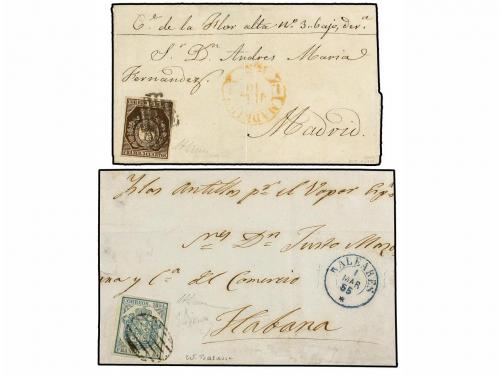 C.e de la Flor alta Nº 3. bajo, der.a
S.r D.n Andres Maria
Fernandez
MADRID
Madrid.
Yslas Antillas p.r el Vapor
S.res D.n Justo
y C.a del Comercio
BALEARES
1
MAR
55
CORREOS. 1854
Habana